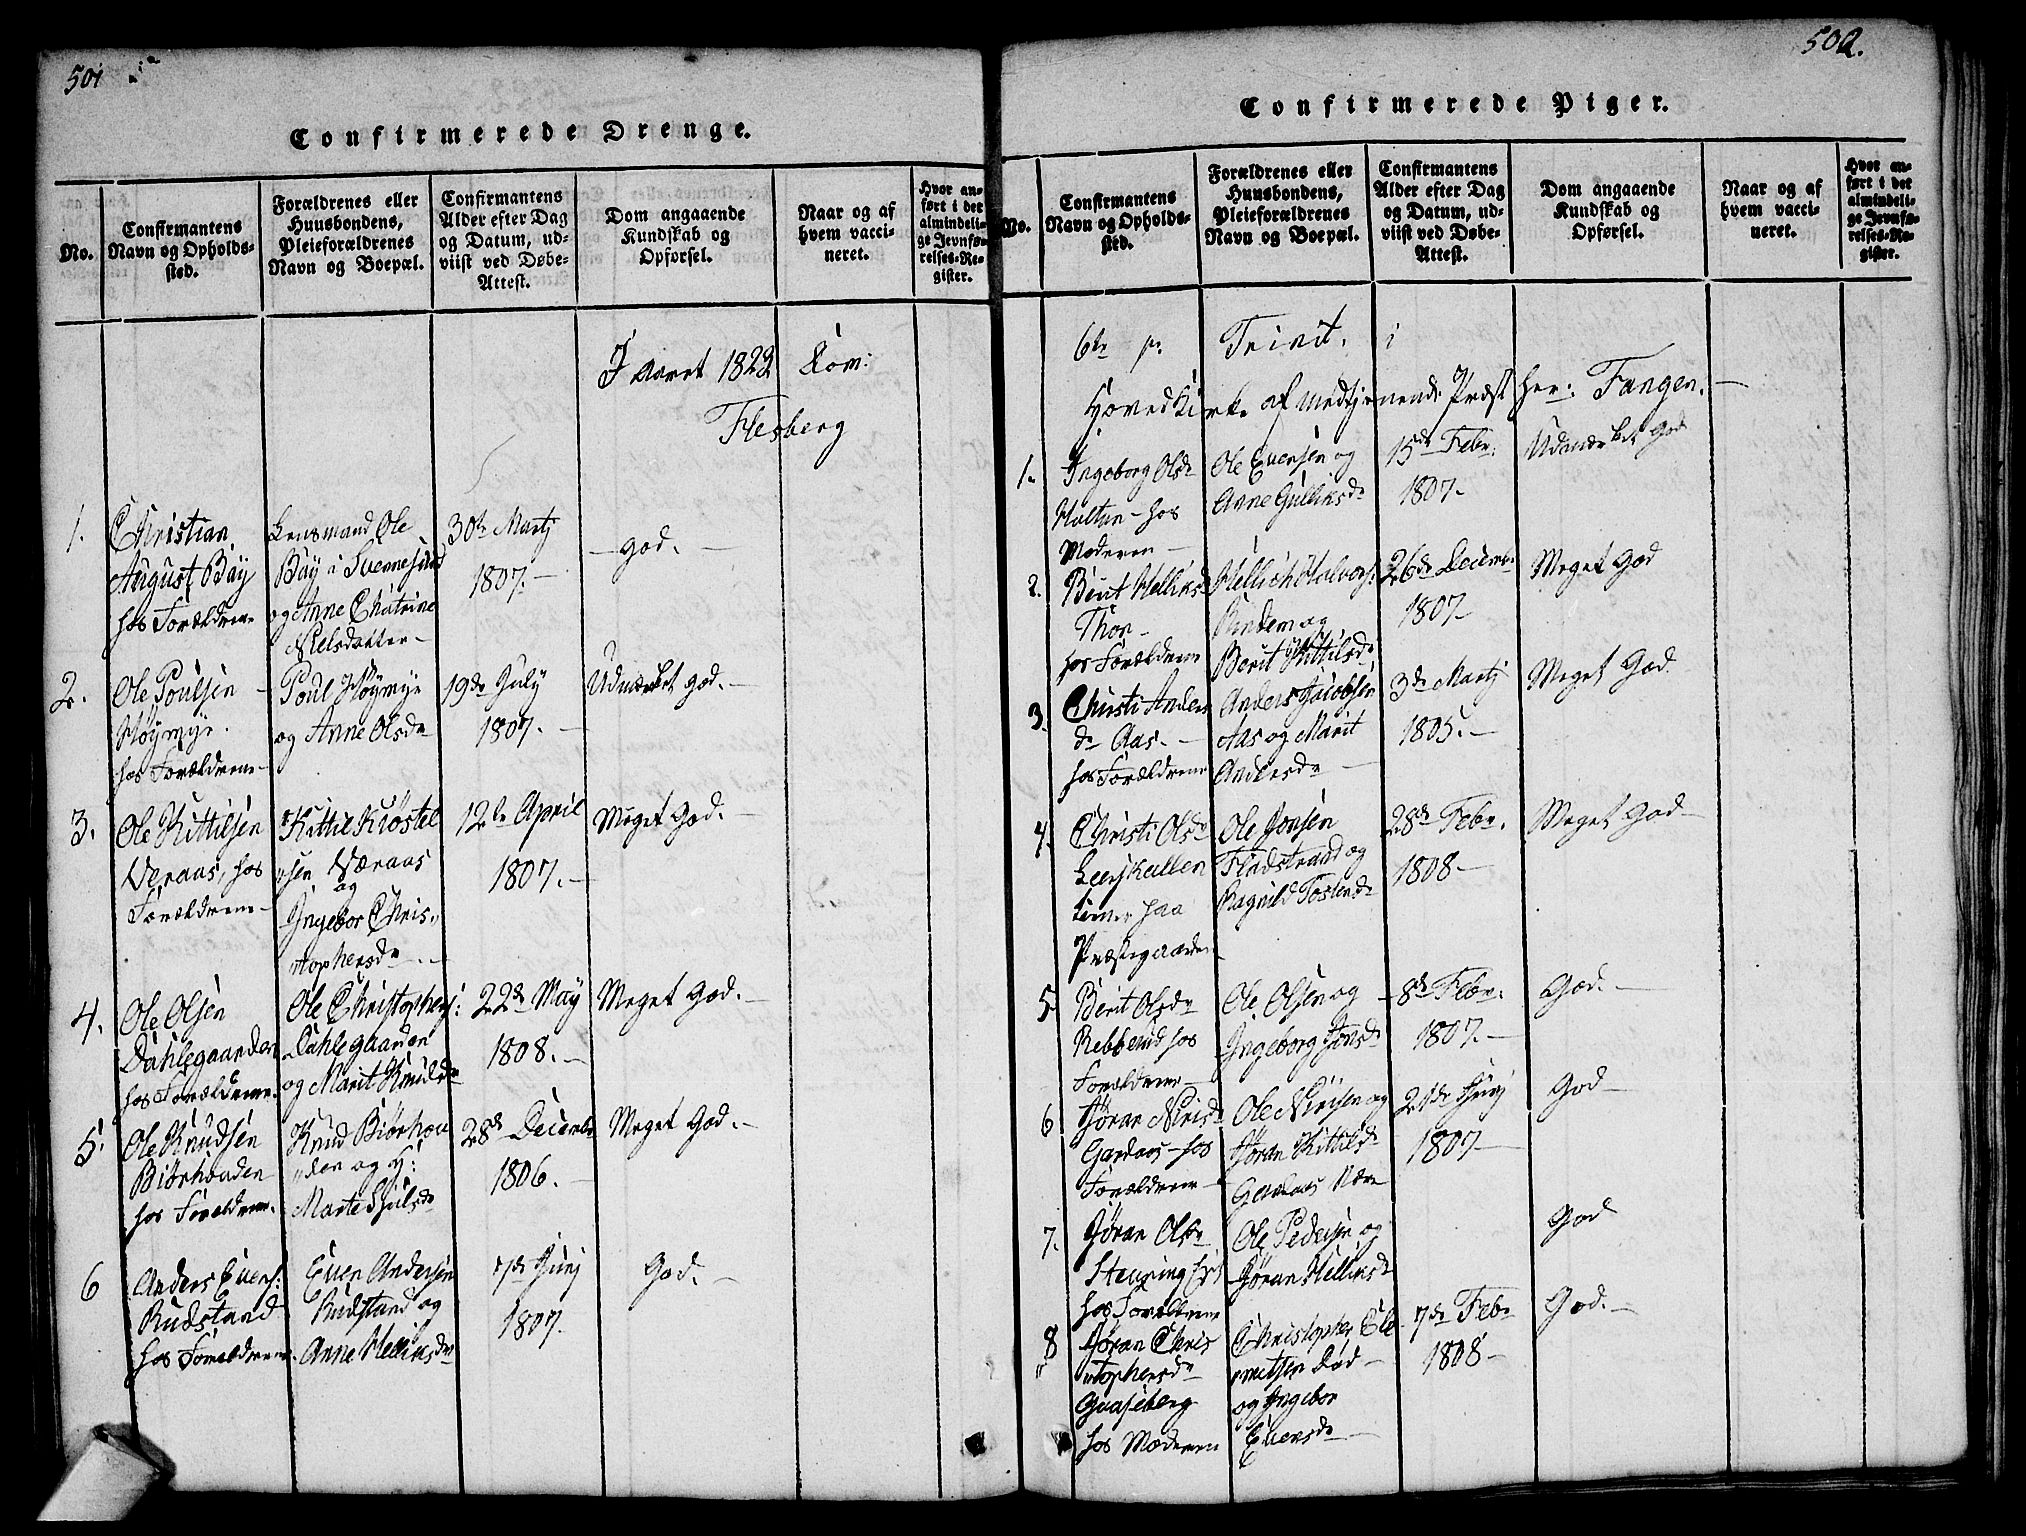 501
Confirmerede Drenge.
No.
Confirmantens
Navn og Opholds-
sted.
Forældrenes eller
Huusbondens,
Pleieforældrenes
Navn og Boepæl.
Confirmantens
Alder efter Dag
og Datum, ud-
viist ved Døbe-
Attest.
Dom angaaende
Kundskab og
Opførsel.
Naar og af
hvem vacci-
neret.
Hvor an-
ført i det
almindeli-
ge Jevnfø-
relses-Re-
gister.
I Aaret 1822 Dom:
Flesberg
1.
Christian
August Bay
hos Forældrene
Lensmand Ole
Bay i Svennesund
og Anne Chatrine
Nielsdatter-
30te Martj
1807.-
- god. -
2.
Ole Poulsen -
Høymyr.
hos Forældrene-
Poul Høymyr
og Anne Olsdr
19de July
1807. -
Udmærket god. -
3.
Ole Kittilsen
Veraas, hos
Forældrene-
Kittil Kiøstel
"sen Væraas
og
Ingebor Chris,,
"tophersdr -
12te April
1807. -
Meget God. -
4.
Ole Olsen
Dahlegaarden
hos Forældrene.
Ole Christophers:
Dahlegaarden
og Marit Knudsdr
22de May
1808. -
Meget God. -
5.
Ole Knudsen
Biørhouden
hos Forældrene.
Knud Biørhou
"den og H:
Marte Hiulsdr
28de Decembr
1806. -
Meget God. -
6
Anders Evens:
Rudstand
hos Forældrene.
Even Andersen
Rudstand og
Anne Hellinsdr
7de Junj
1807.
God. -
502.
Confirmerede Piger.
No.
Confirmantens
Navn og Opholds-
sted.
Forældrenes eller
Huusbondens,
Pleieforældrenes
Navn og Boepæl.
Confirmantens
Alder efter Dag
og Datum, ud-
viist ved Døbe-
Attest.
Dom angaaende
Kundskab og
Opførsel.
Naar og af
hvem vacci-
neret.
Hvor an-
ført i det
almindeli-
ge Jevnfø-
relses-Re-
gister.
6te p. Trinit. i
Hovedkirke af medtjenende Præst Her: Fangen. -
1.
Ingeborg Olsdr
Holtan - hos
Moderen -
Ole Evensen og
Anne Gulliksdr
15de Febr.
1807.
Udmærket God
2.
Berit Hellinsdr
Thon -
hos Forældrene
Hellich Halvors:
og
Berit Kittilsdr
26de Decembr
1807-
Meget God
3.
Christi Anders
dr Aas. -
hos Forældrene
Anders Jacobsen
Aas og Marit
Andersdr -
3de Martj
1805. -
Meget God.
4.
Christi Olsdr
Leerskallen
tiener paa
Præstegaarden
Ole Jonsen
Fladstrand og
Ragnild Tostensdr
28de Febr.
1808-
Meget God -
5
Berit Olsdr
Rebberud hos
Forældrene -
Ole Olsen og
Ingeborg Jonsdr
8de Febr.
1807. -
God. -
6
Jøran Nirisdr
Gardaas - hos
Forældrene -
Ole Nirisen og
Jøran Kittilsdr
Gardaas
21de Junj
1807 -
God -
7.
Jøran Olsdr
hos Forældrene
Ole Pedersen og
Jøran Hellinsdr
God
8
Jøran Chris
"tophersdr
Gaaseberg
hos Moderen
Christopher Cle
"metsen Død -
og Ingebor
Evensdr -
7de Febr
1808 -
God. -